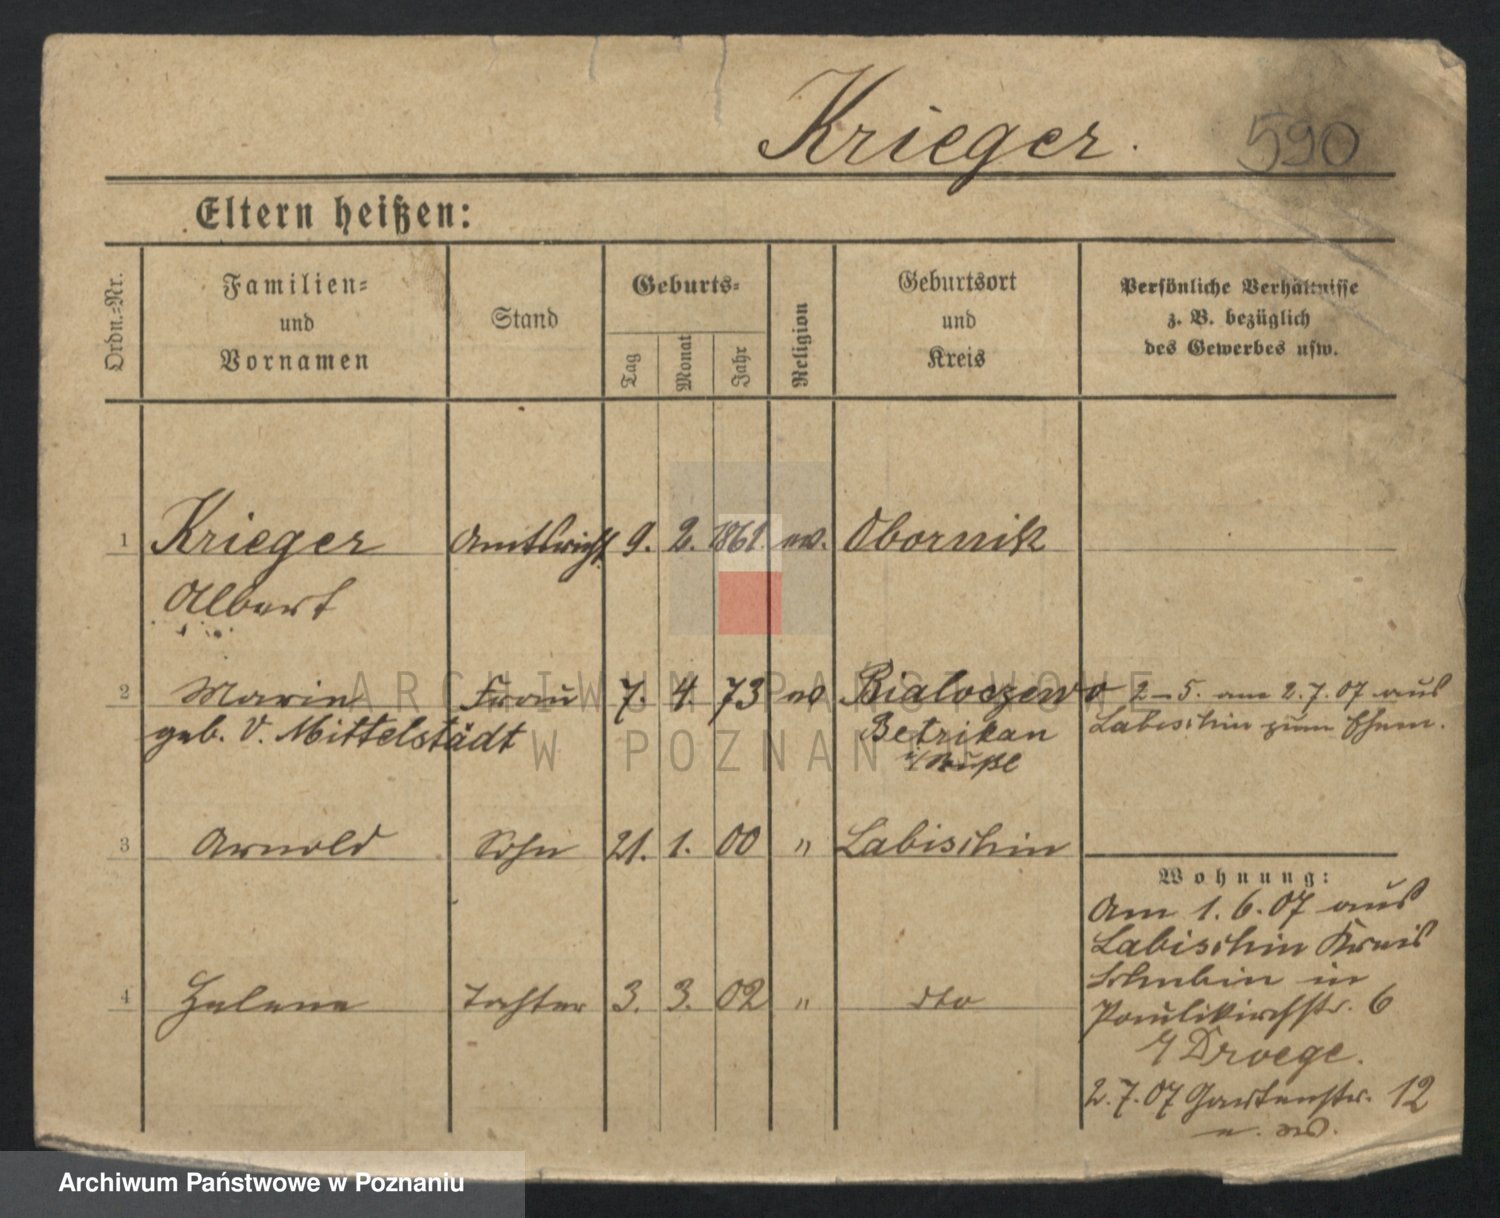 Krieger. 590
Eltern heißen:
Ordn.-Nr.
Familien-
und
Vornamen
Stand
Geburts-
Tag
Monat
Jahr
Religion
Geburtsort
und
Kreis
Persönliche Verhältnisse
z. B. bezüglich
des Gewerbes usw.
1 Krieger Amtsricht. 9. 2. 1861. ev. Obornik
Albert
2 Marie Frau 7. 4. 73 ev Bialoszewo 2–5. am 2.7.07 aus
geb. v. Mittelstädt Betrikau Labischin zum Ehem.
i/Rußl
3 Arnold Sohn 21. 1. 00 " Labischin
Wohnung:
Am 1.6.07 aus
Labischin Kreis
Schubin in
4 Helene Tochter 3. 3. 02 " dto
Paulikirchstr. 6
b/ Droege.
2.7.07 Gartenstr. 12
ARCHIWUM PAŃSTWOWE
W POZNANIU
Archiwum Państwowe w Poznaniu